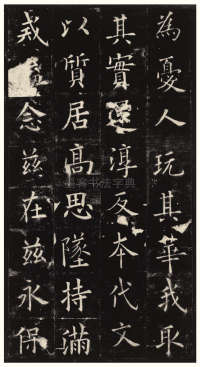 為憂人玩其華我取
其實還淳反本代文
以質居高思墜持滿
戒念茲在茲永保